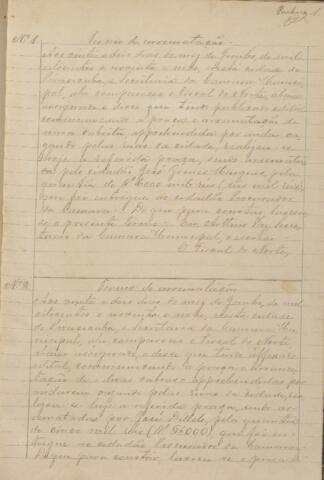 Nº 1. Termo de arrematação.
Aos vinte e dois dias do mez de Junho, de mil
oitocentos e noventa e nove, nesta cidade de
Piracicaba, e Secretaria da Camara Munici-
pal, ahi compareceu o Fiscal do Norte,
e disse que tendo publicado edital
concernente a praça e arrematação de
uma cabrita, apprehendida por andar va-
gando pelas ruas da cidade, realizou-se
hoje a referida praça, sendo arrematada
pelo cidadão José Gomes Marques, pela
quantia de Rs 6$000 mil reis (seis mil reis),
que foi entregue ao cidadão Procurador
da Camara. De que para constar lavrou-
se o presente termo. Eu, Arthur Vaz, Secre-
tario da Camara Municipal, o escrevi.
O Fiscal do Norte,
Nº 2. Termo de arrematação
Aos vinte e dois dias do mez de Junho, de mil
oitocentos e noventa e nove, nesta cidade
de Piracicaba, e Secretaria da Camara Mu-
nicipal, ahi compareceu o Fiscal do Norte,
e disse que tendo affixado
edital, concernente a praça e arrema-
tação de duas cabras apprehendidas por
andarem vagando pelas ruas da cidade, rea-
lizou-se hoje a referida praça, sendo ar-
rematadas por José pela quantia
de cinco mil reis (Rs 5$000) que foi en-
tregue ao cidadão Procurador da Camara.
De que para constar, lavrou-se o presente